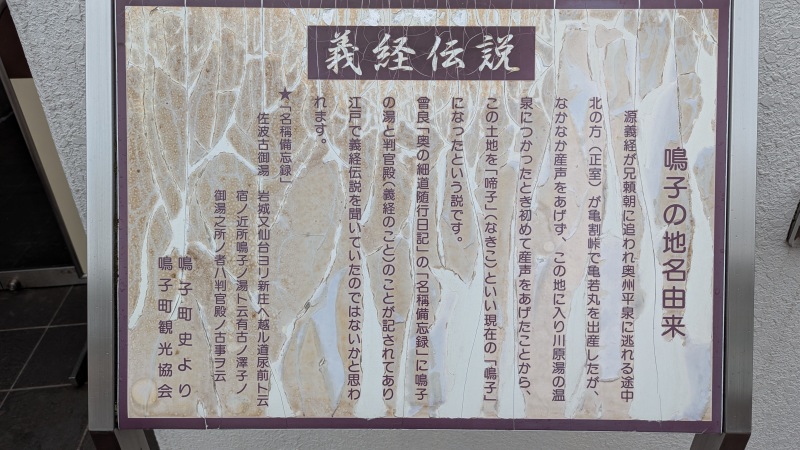 義経伝説
鳴子の地名由来
源義経が兄頼朝に追われ奥州平泉に逃れる途中
北の方（正室）が亀割峠で亀若丸を出産したが、
なかなか産声をあげず、この地に入り川原湯の温
泉につかったとき初めて産声をあげたことから、
この土地を「啼子」（なきこ）といい現在の「鳴子」
になったという説です。
曾良「奥の細道随行日記」の「名稱備忘録」に鳴子
の湯と判官殿（義経のこと）のことが記されてあり
江戸で義経伝説を聞いていたのではないかと思わ
れます。
★「名稱備忘録」
佐波古御湯　岩城又仙台ヨリ新庄ヘ越ル道尿前ト云
宿ノ近所鳴子ノ湯ト云有古ノ澤子ノ
御湯之所ノ者ハ判官殿ノ古事ヲ云
鳴子町史より
鳴子町観光協会